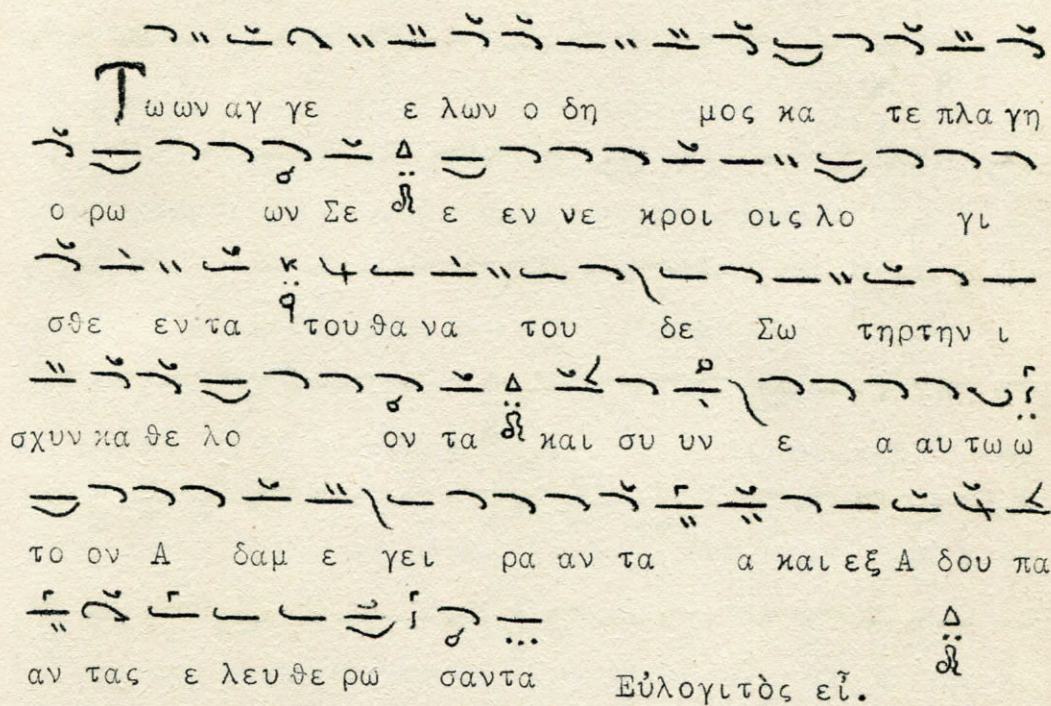 Τωων αγ γε ε λων ο δη μος κα τε πλα γη
ο ρω ων Σε ε εν νε κροι οις λο γι
σθε εν τα του θα να του δε Σω τηρτην ι
σχυν κα θε λο ον τα και συ υν ε α αυ τω ω
το ον Α δαμ ε γει ρα αν τα α και εξ Α δου πα
αν τας ε λευ θε ρω σαντα Εὐλογιτὸς εἶ.